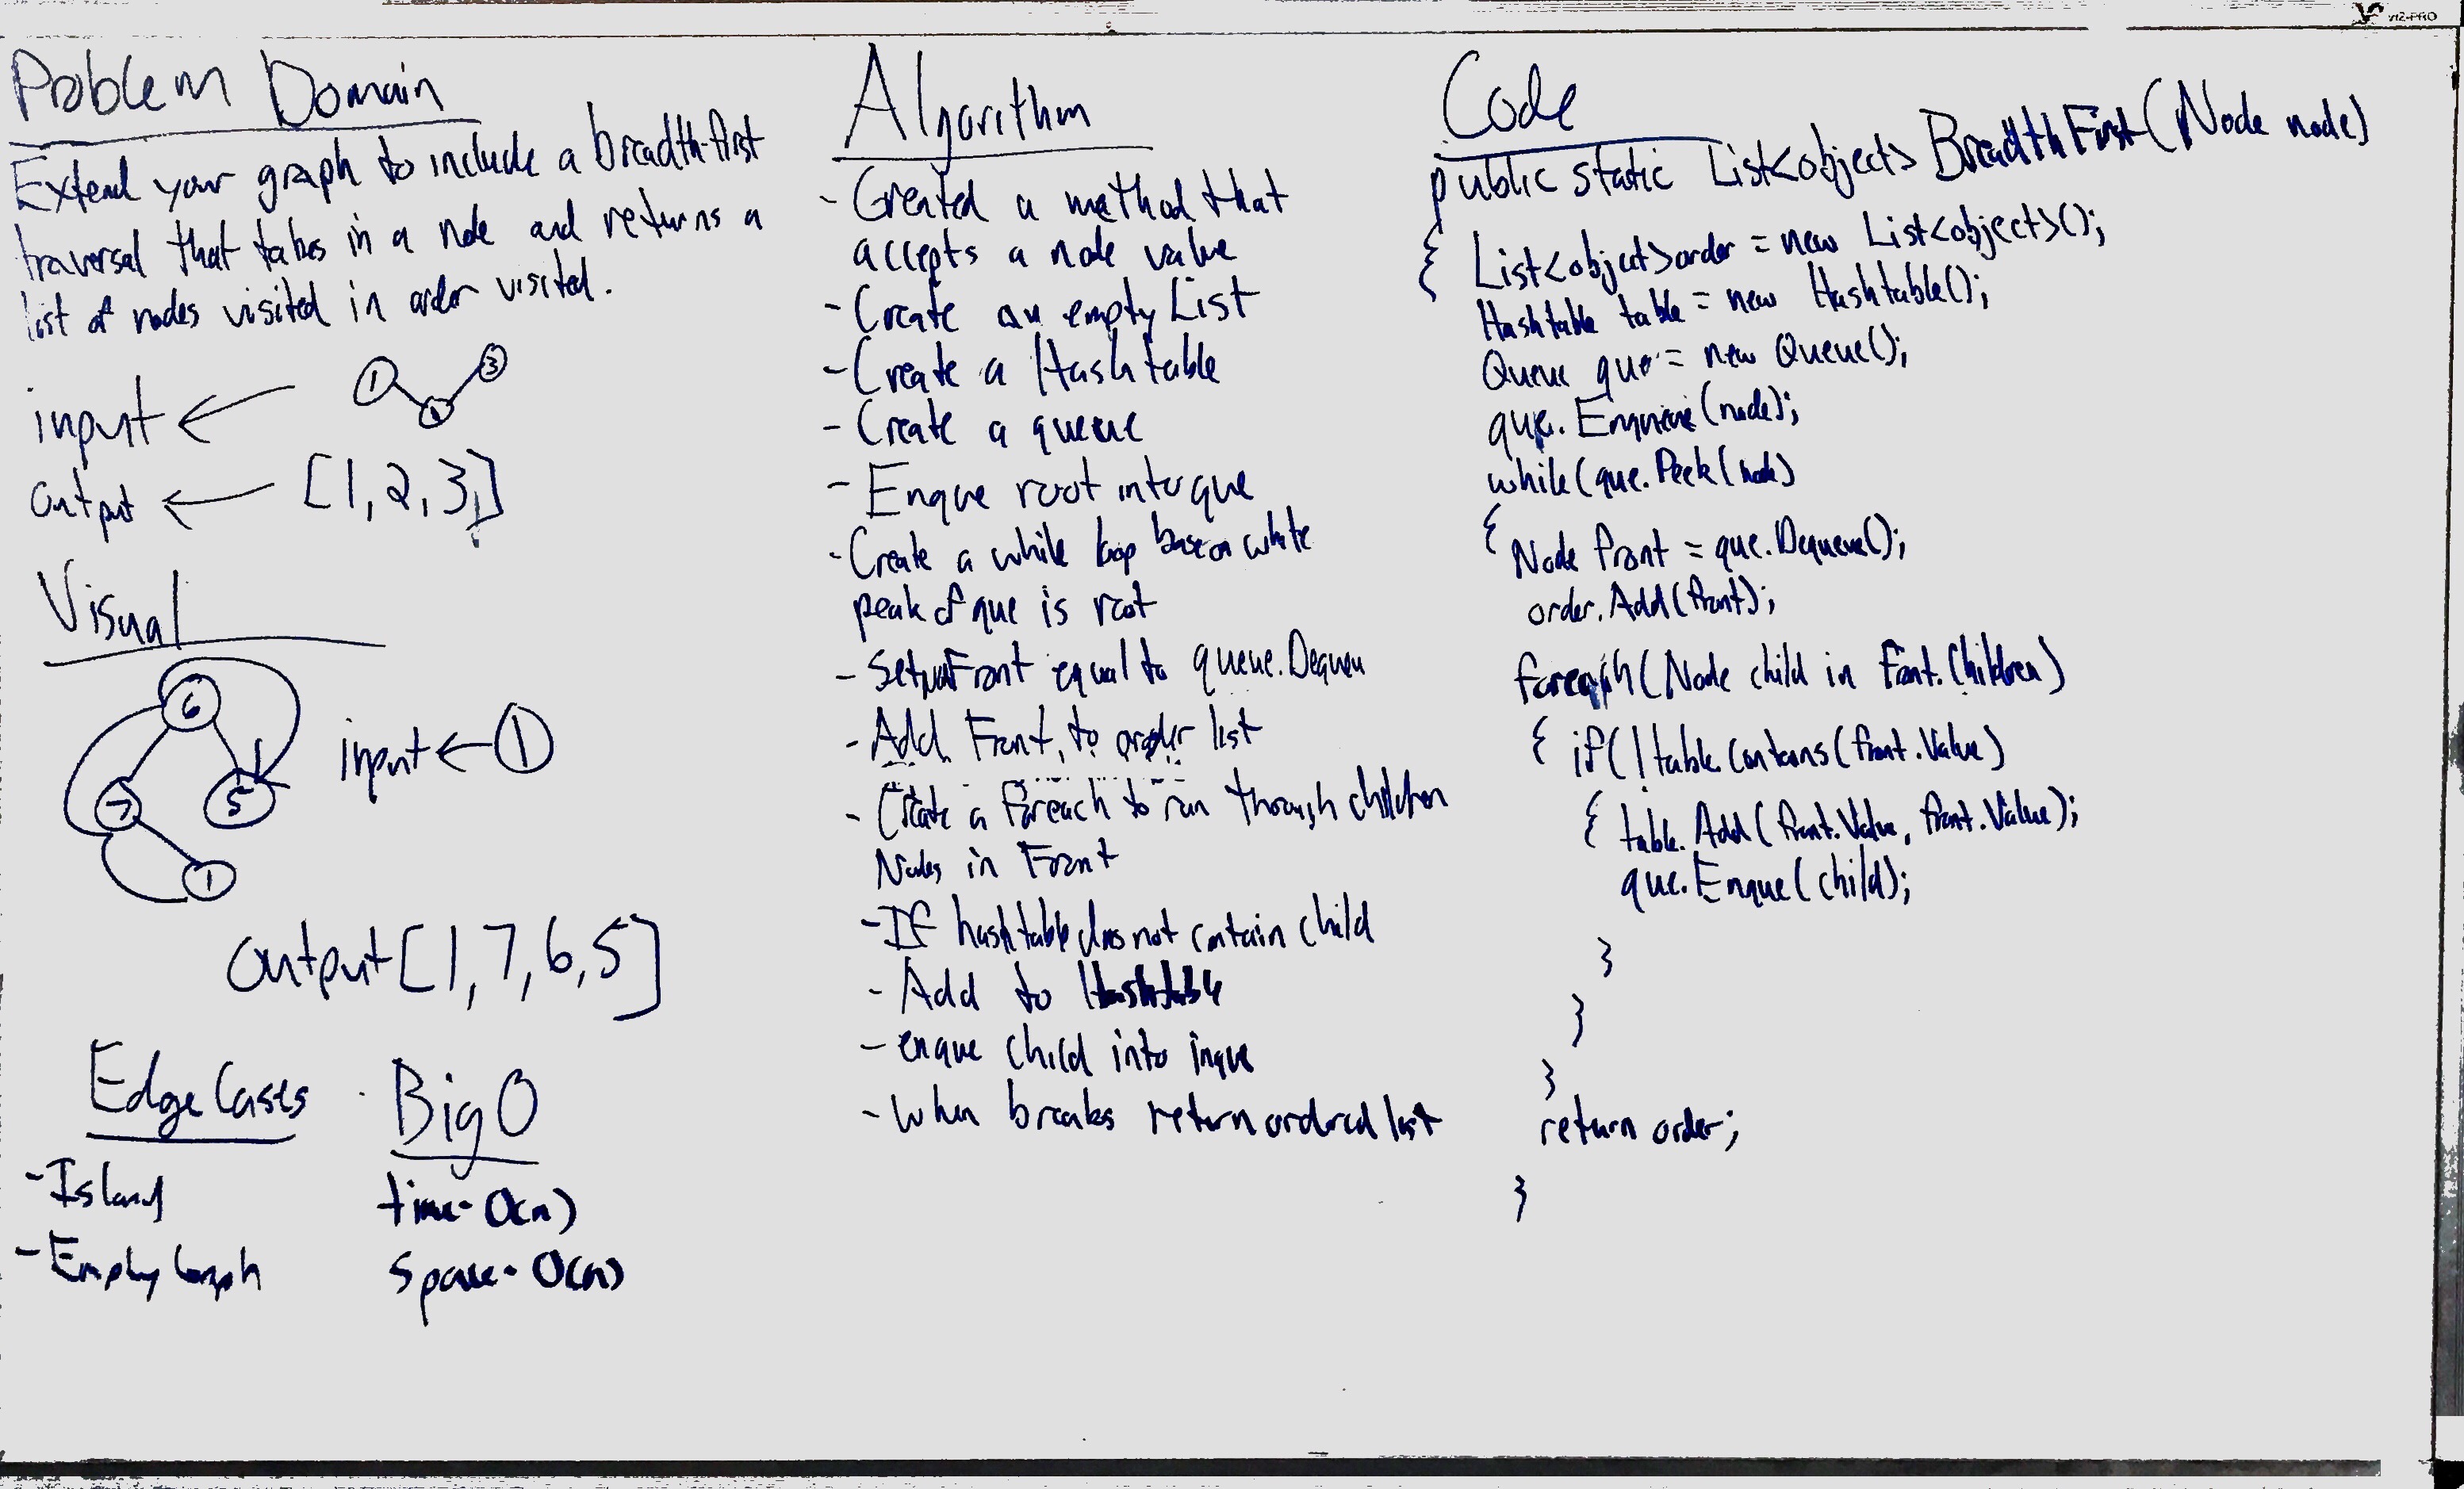 VIZ-PRO
Problem Domain
Extend your graph to include a breadth-first
traversal that takes in a node and returns a
list of nodes visited in order visited.
1
3
2
input ←
output ← [1,2,3]
Visual
6
7
5
1
input ← 1
output [1,7,6,5]
Edge Cases
- Island
- Empty Graph
Big O
time - O(n)
space - O(n)
Algorithm
- Created a method that
accepts a node value
- Create an empty List
- Create a Hashtable
- Create a queue
- Enque root into que
- Create a while loop base on while
peak of que is root
- Set Front equal to queue.Dequeu
- Add Front, to order list
- Create a foreach to run through children
Nodes in Front
- If hashtable does not contain child
- Add to Hashtable
- enque child into
- When breaks return ordered list
Code
public static List<object> BreadthFirst(Node node)
{ List<object> order = new List<object>();
Hashtable table = new Hashtable();
Queue que = new Queue();
que.Enqueue(node);
while(que.Peek(node)
{
Node front = que.Dequeue();
order.Add(front);
foreach(Node child in Front.Children)
{ if(!table.Contains(front.Value)
{ table.Add(front.Value, front.Value);
que.Enque(child);
}
}
}
return order;
}